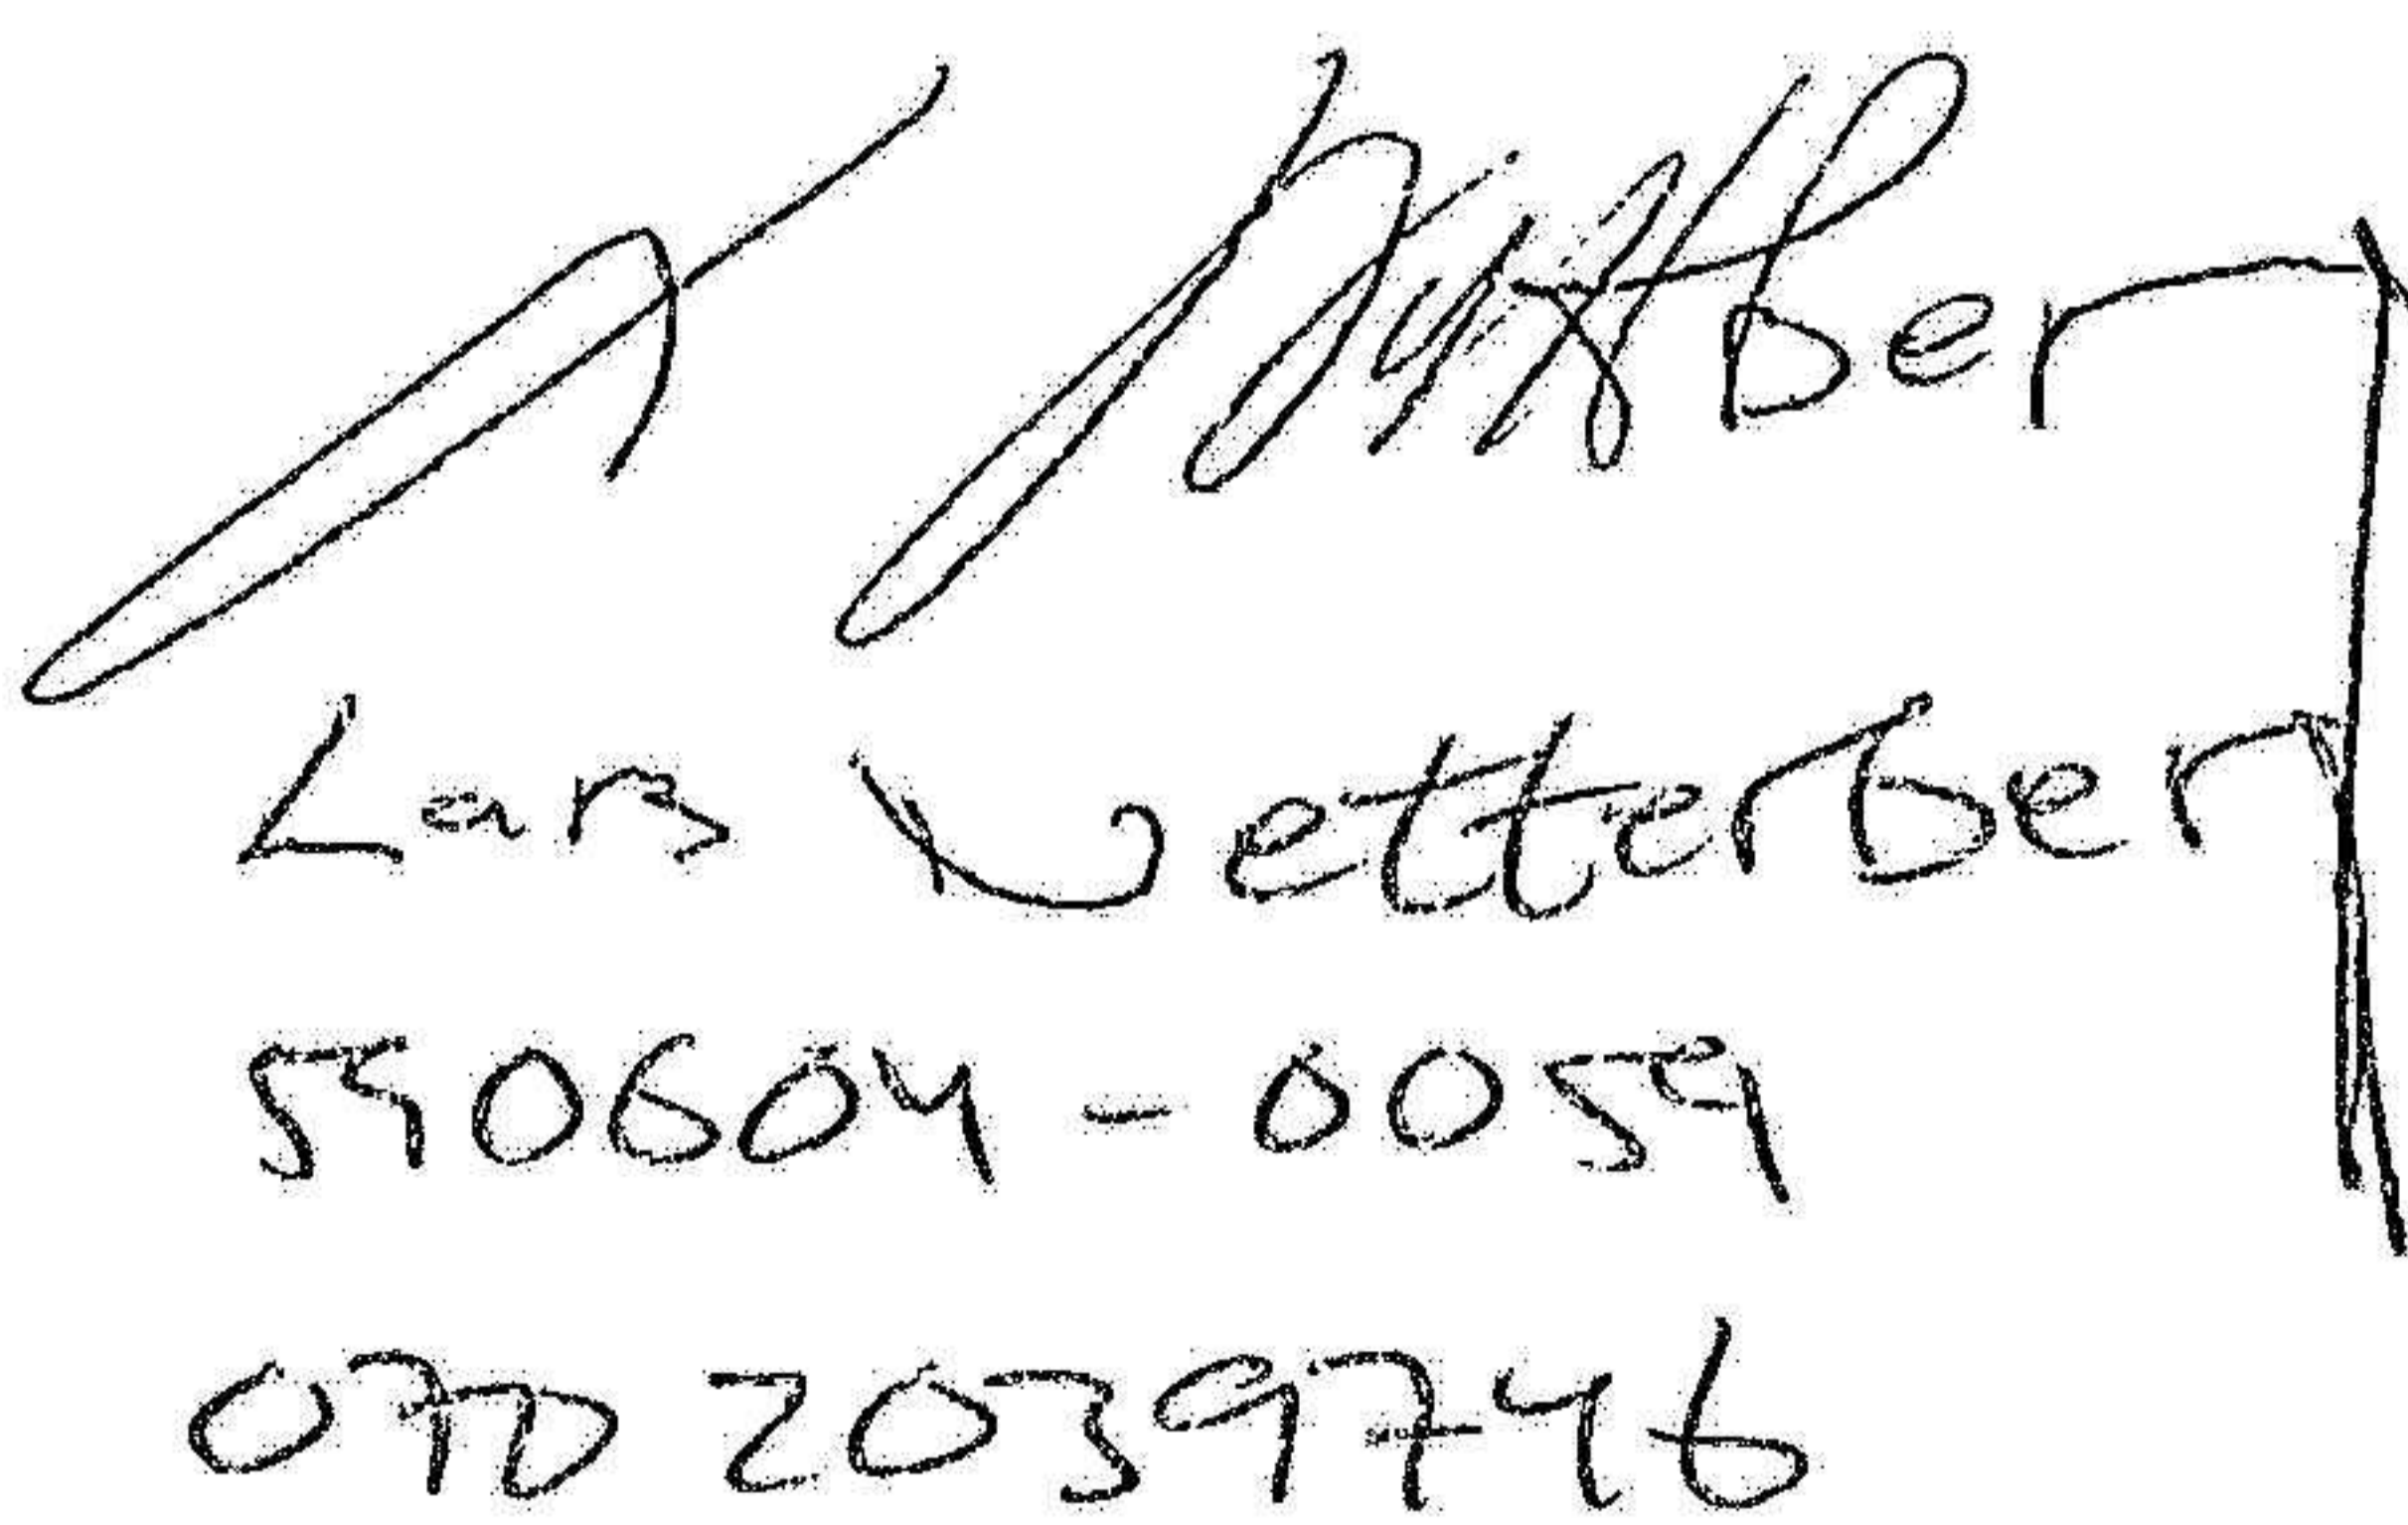 Lars Wetterberg
590604-0059
070 2039746